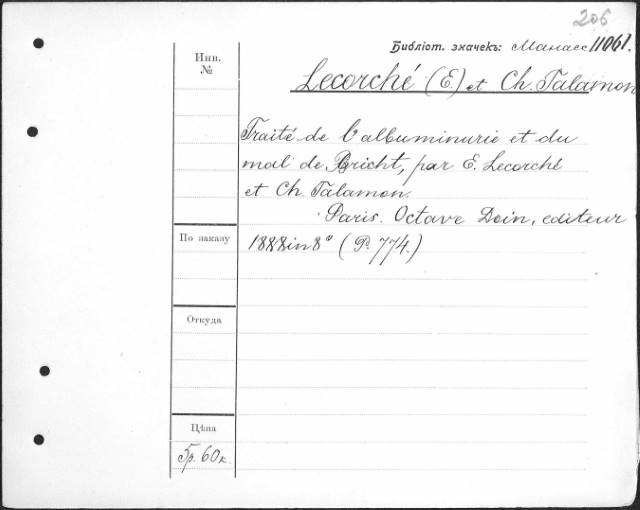 206
Библіот. значекъ: Манасс 11061.
Инв. №
Lecorché (E.) et Ch. Talamon
Traité de l'albuminurie et du
mal de Bricht, par E. Lecorché
et Ch. Talamon.
Paris. Octave Doin, editeur
По заказу
1888 in 8° (P. 774.)
Откуда
Цѣна
5р. 60к.